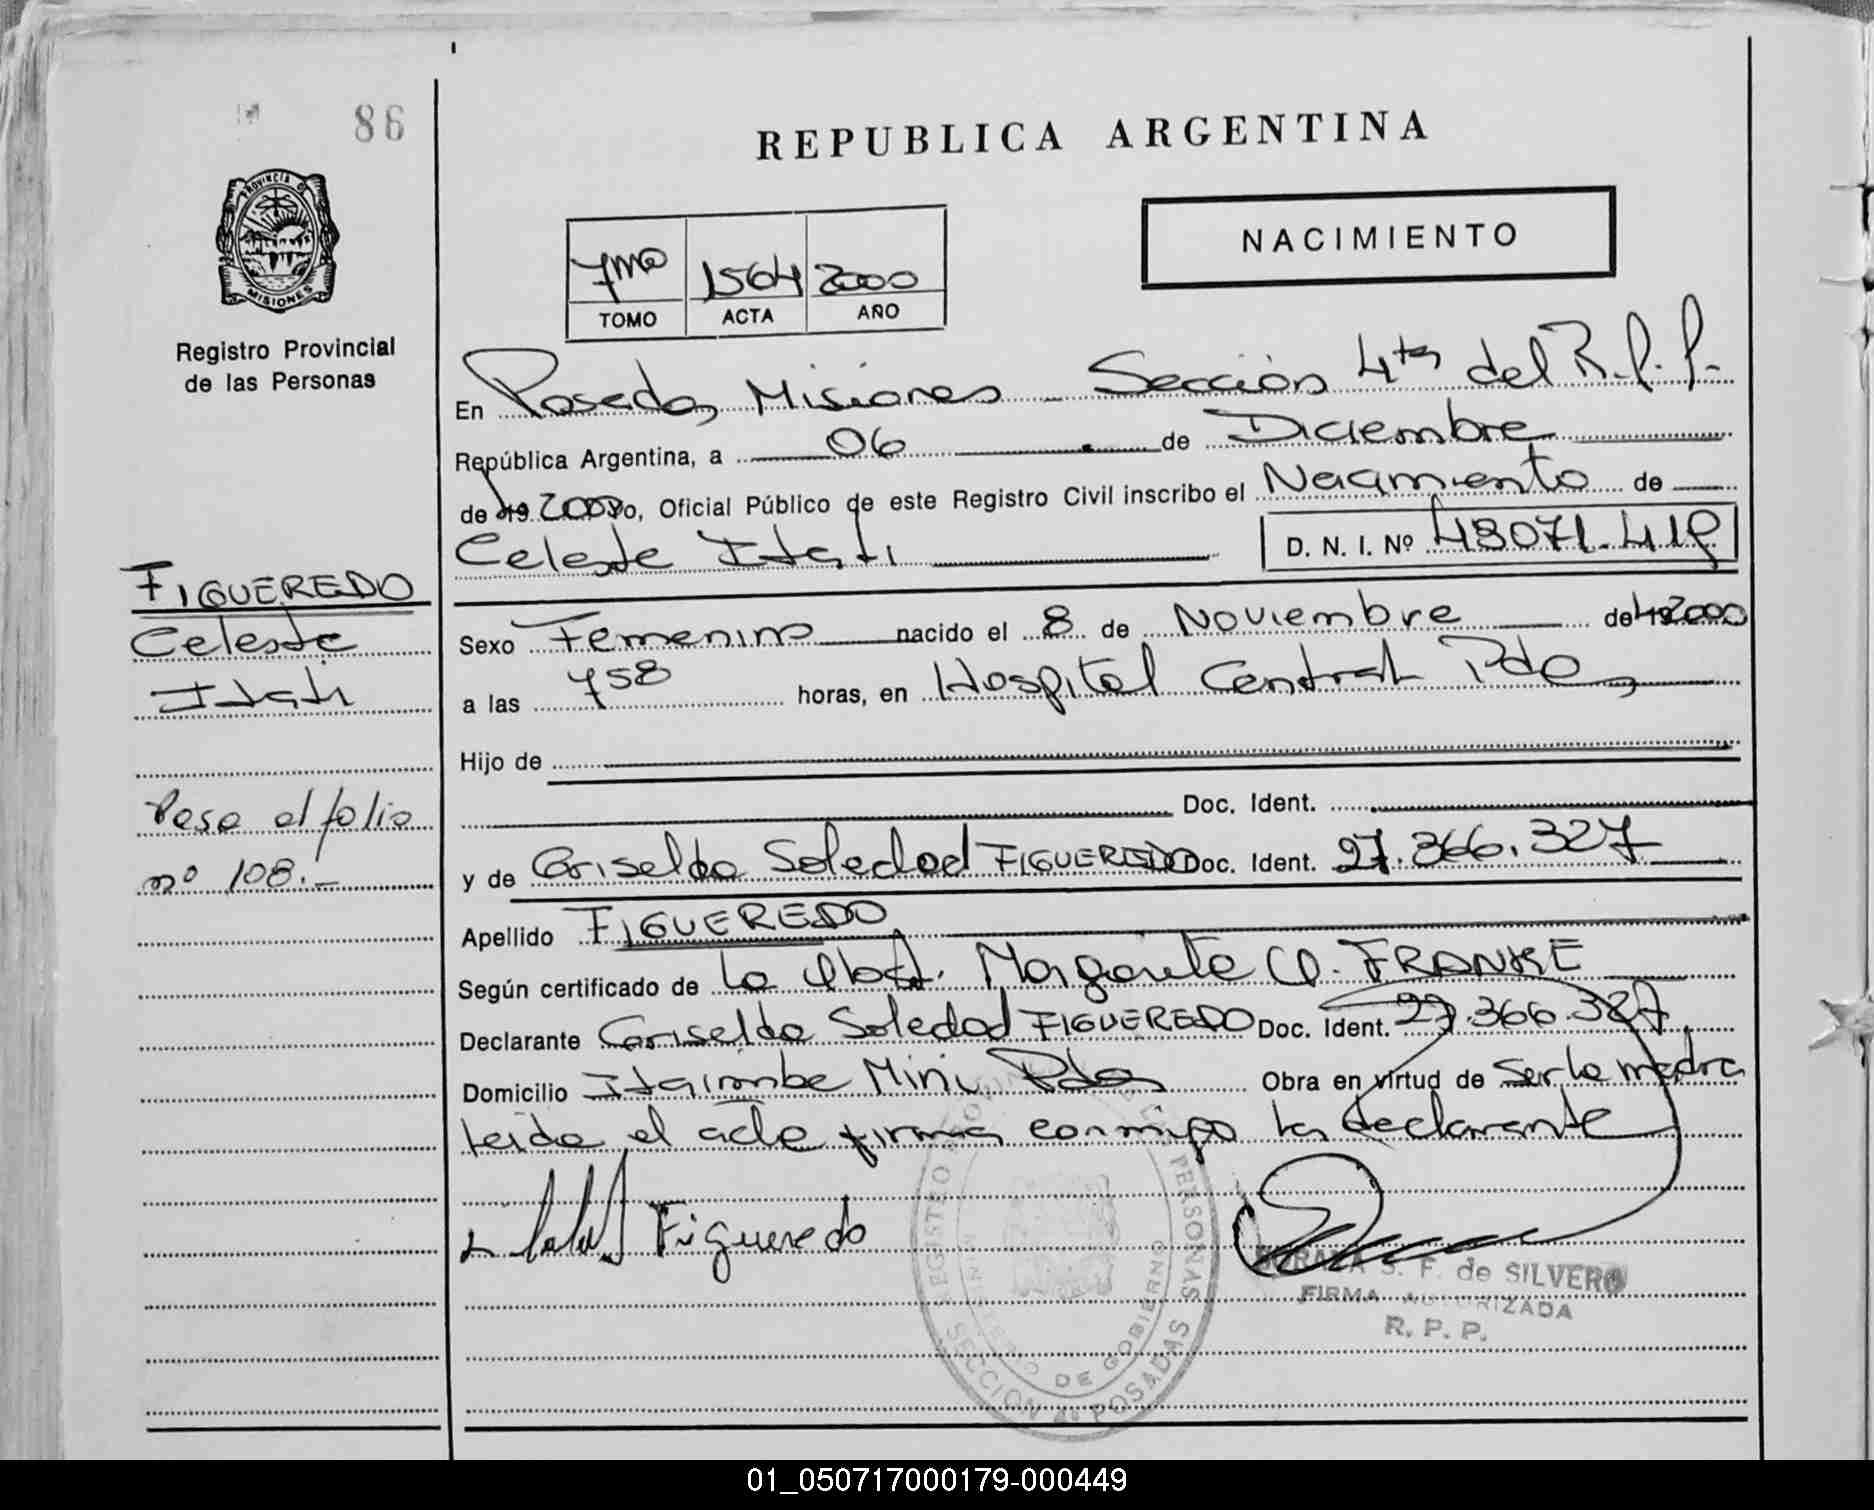 86
REPUBLICA ARGENTINA
NACIMIENTO
7mo 1564 2000
TOMO ACTA AÑO
PROVINCIA DE
MISIONES
Registro Provincial
de las Personas
En Posadas, Misiones - Sección 4ta del R.P.P.
República Argentina, a 06 de Diciembre
de 19 2000 Yo, Oficial Público de este Registro Civil inscribo el Nacimiento de
Celeste Itatí D. N. I. Nº 43071.419
FIGUEREDO
Celeste
Itatí
Sexo Femenino nacido el 8 de Noviembre de 19 2000
a las 758 horas, en Hospital Central Pdas
Hijo de
Doc. Ident.
Pasa al folio
nº 108.-
y de Griselda Soledad FIGUEREDO Doc. Ident. 27.366.327
Apellido FIGUEREDO
Según certificado de La Obst. Margarita O. FRANKE
Declarante Griselda Soledad FIGUEREDO Doc. Ident. 27.366.327
Domicilio Itaimbe Mini Pdas Obra en virtud de ser la madre
Leida el acta firma conmigo la declarante
Figueredo
REGISTRO PROVINCIAL DE LAS PERSONAS
MINISTERIO DE GOBIERNO
SECCION 4º POSADAS
S. F. de SILVERO
FIRMA AUTORIZADA
R. P. P.
01_050717000179-000449